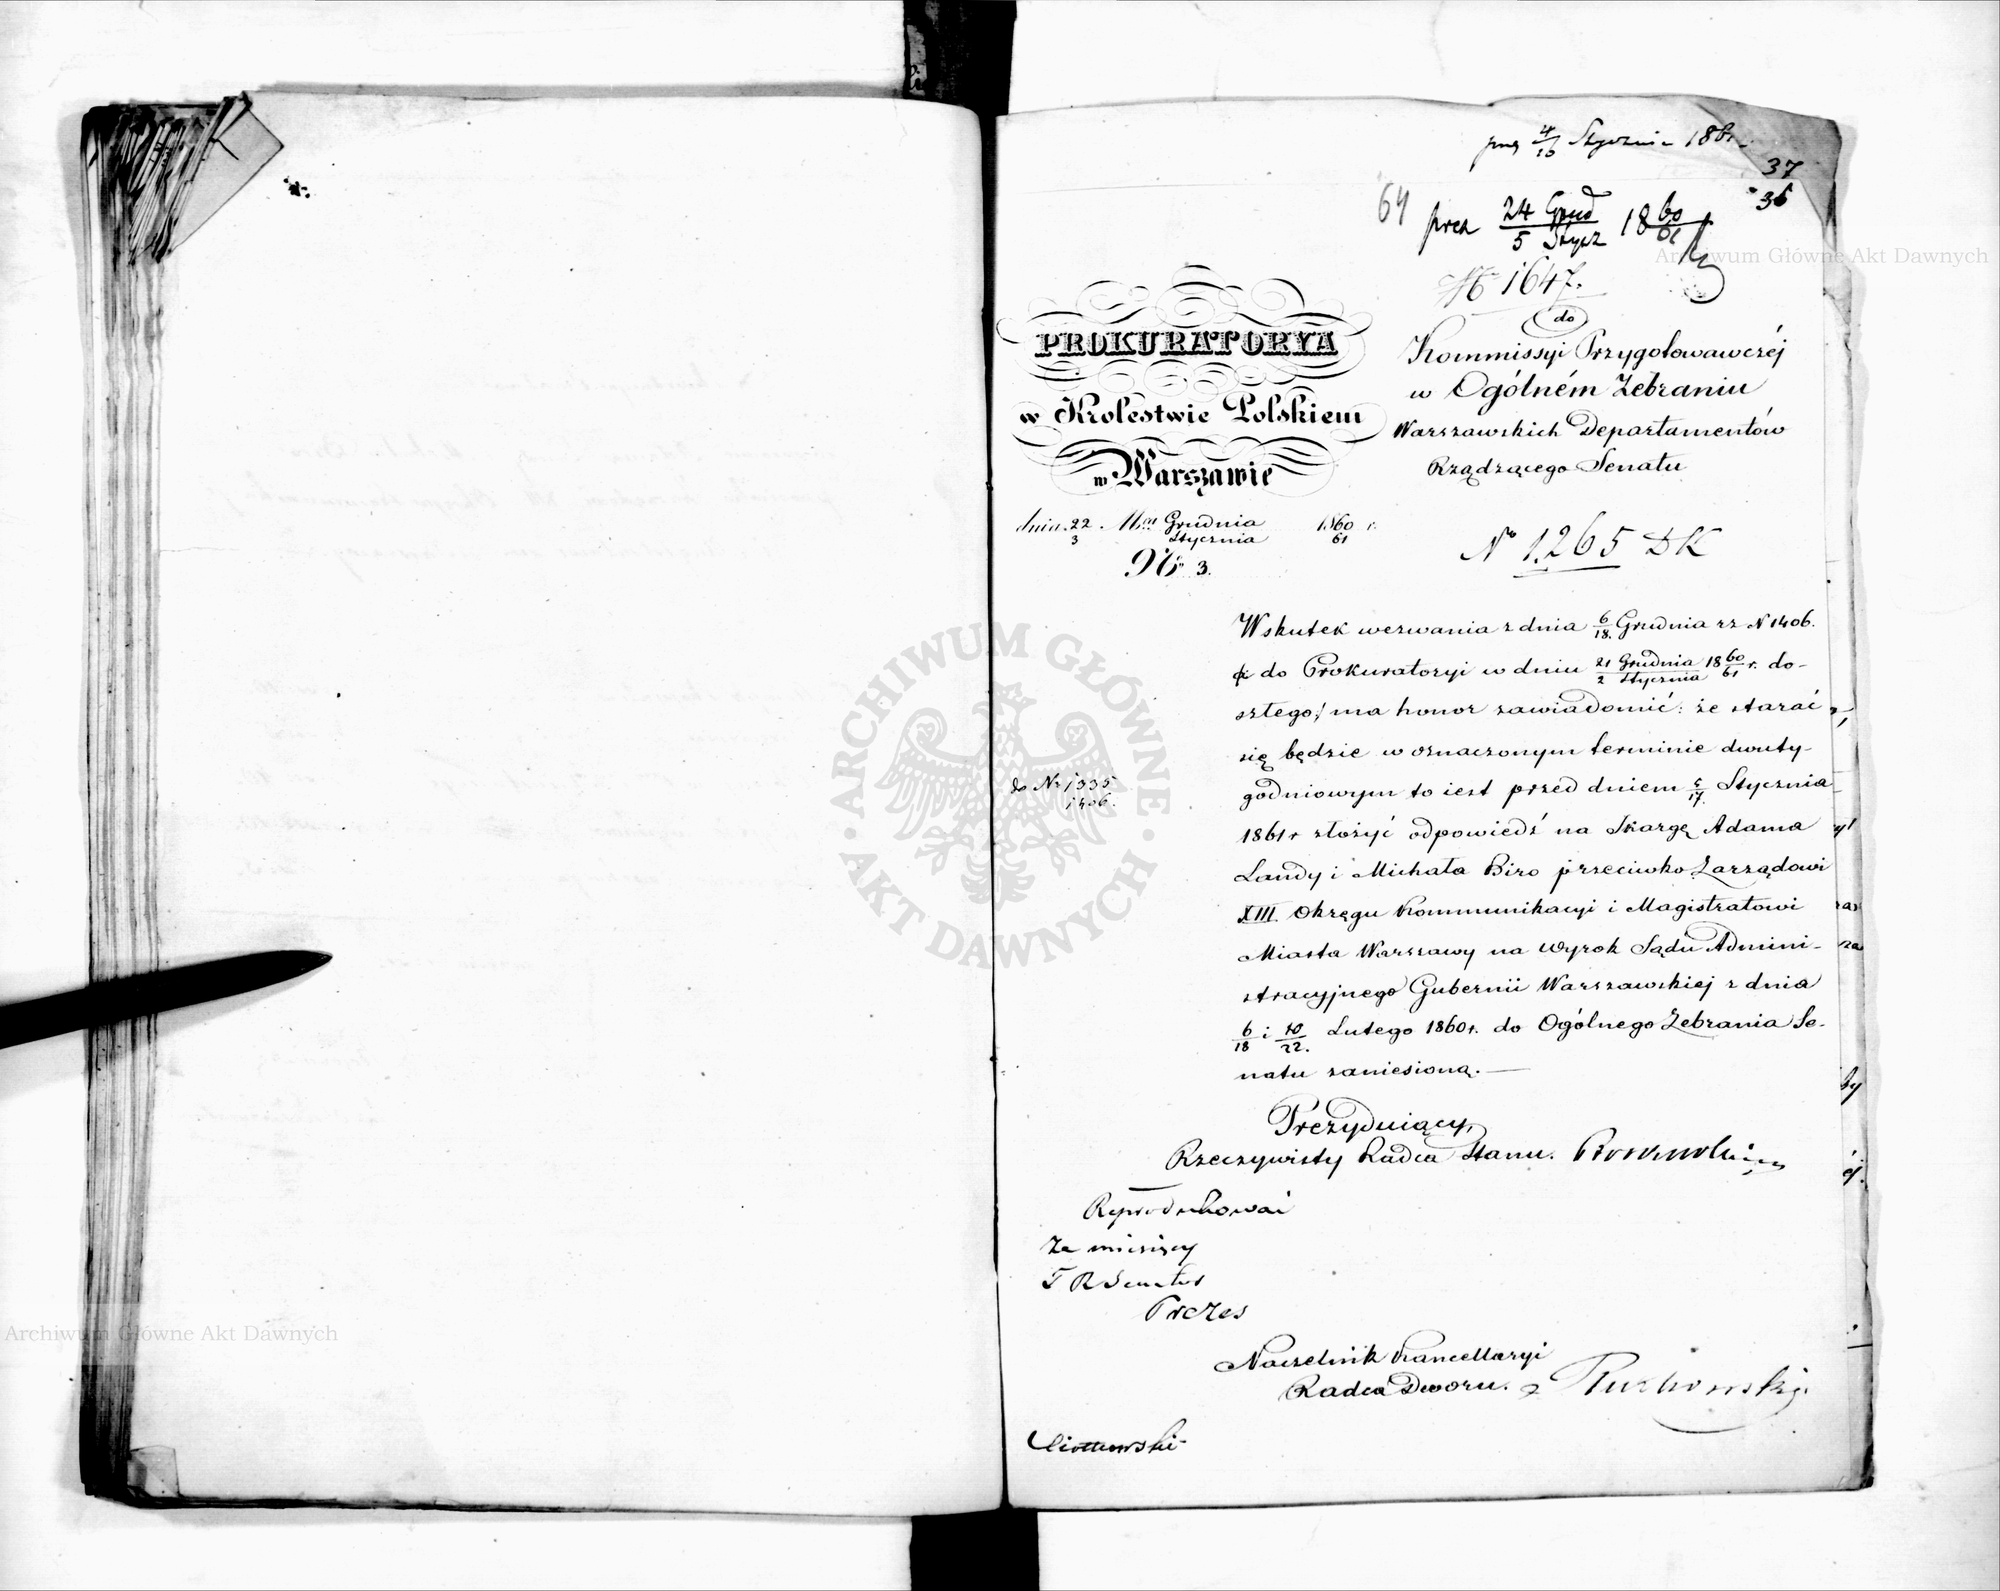 4/10 Stycznia 1861
37
36
64
prez 24 Grud / 5 Stycz 18 60/61
№ 1647.
PROKURATORYA
w Krolestwie Polskiem
w Warszawie
dnia 22/3 Mca Grudnia / Stycznia 1860/61 r.
№ 3.
do
Kommissyi Przygotowawczéj
w Ogólném Zebraniu
Warszawskich Departamentów
Rządzącego Senatu
№ 1,265 DK
Wskutek wezwania z dnia 6/18. Grudnia rz N 1406.
do Prokuratoryi w dniu 21 Grudnia / 2 Stycznia 18 60/61 r. do-
szłego/ ma honor zawiadomić: że starać
się będzie w oznaczonym terminie dwuty-
godniowym to iest przed dniem 5/17. Stycznia
1861 r złożyć odpowiedź na Skargę Adama
Landy i Michała Biro przeciwko Zarządowi
XIII. Okręgu Kommunikacyi i Magistratowi
Miasta Warszawy na Wyrok Sądu Admini-
stracyjnego Gubernii Warszawskiej z dnia
6/18 i 10/22. Lutego 1860 r. do Ogólnego Zebrania Se-
natu zaniesioną. —
do Nr 1335
1406.
Prezyduiący,
Rzeczywisty Radca Stanu.
Reprodukować
Za miesięcy
Prezes
Naczelnik Kancellaryi
Radca Dworu.
ARCHIWUM GŁÓWNE
AKT DAWNYCH
Archiwum Główne Akt Dawnych
Archiwum Główne Akt Dawnych